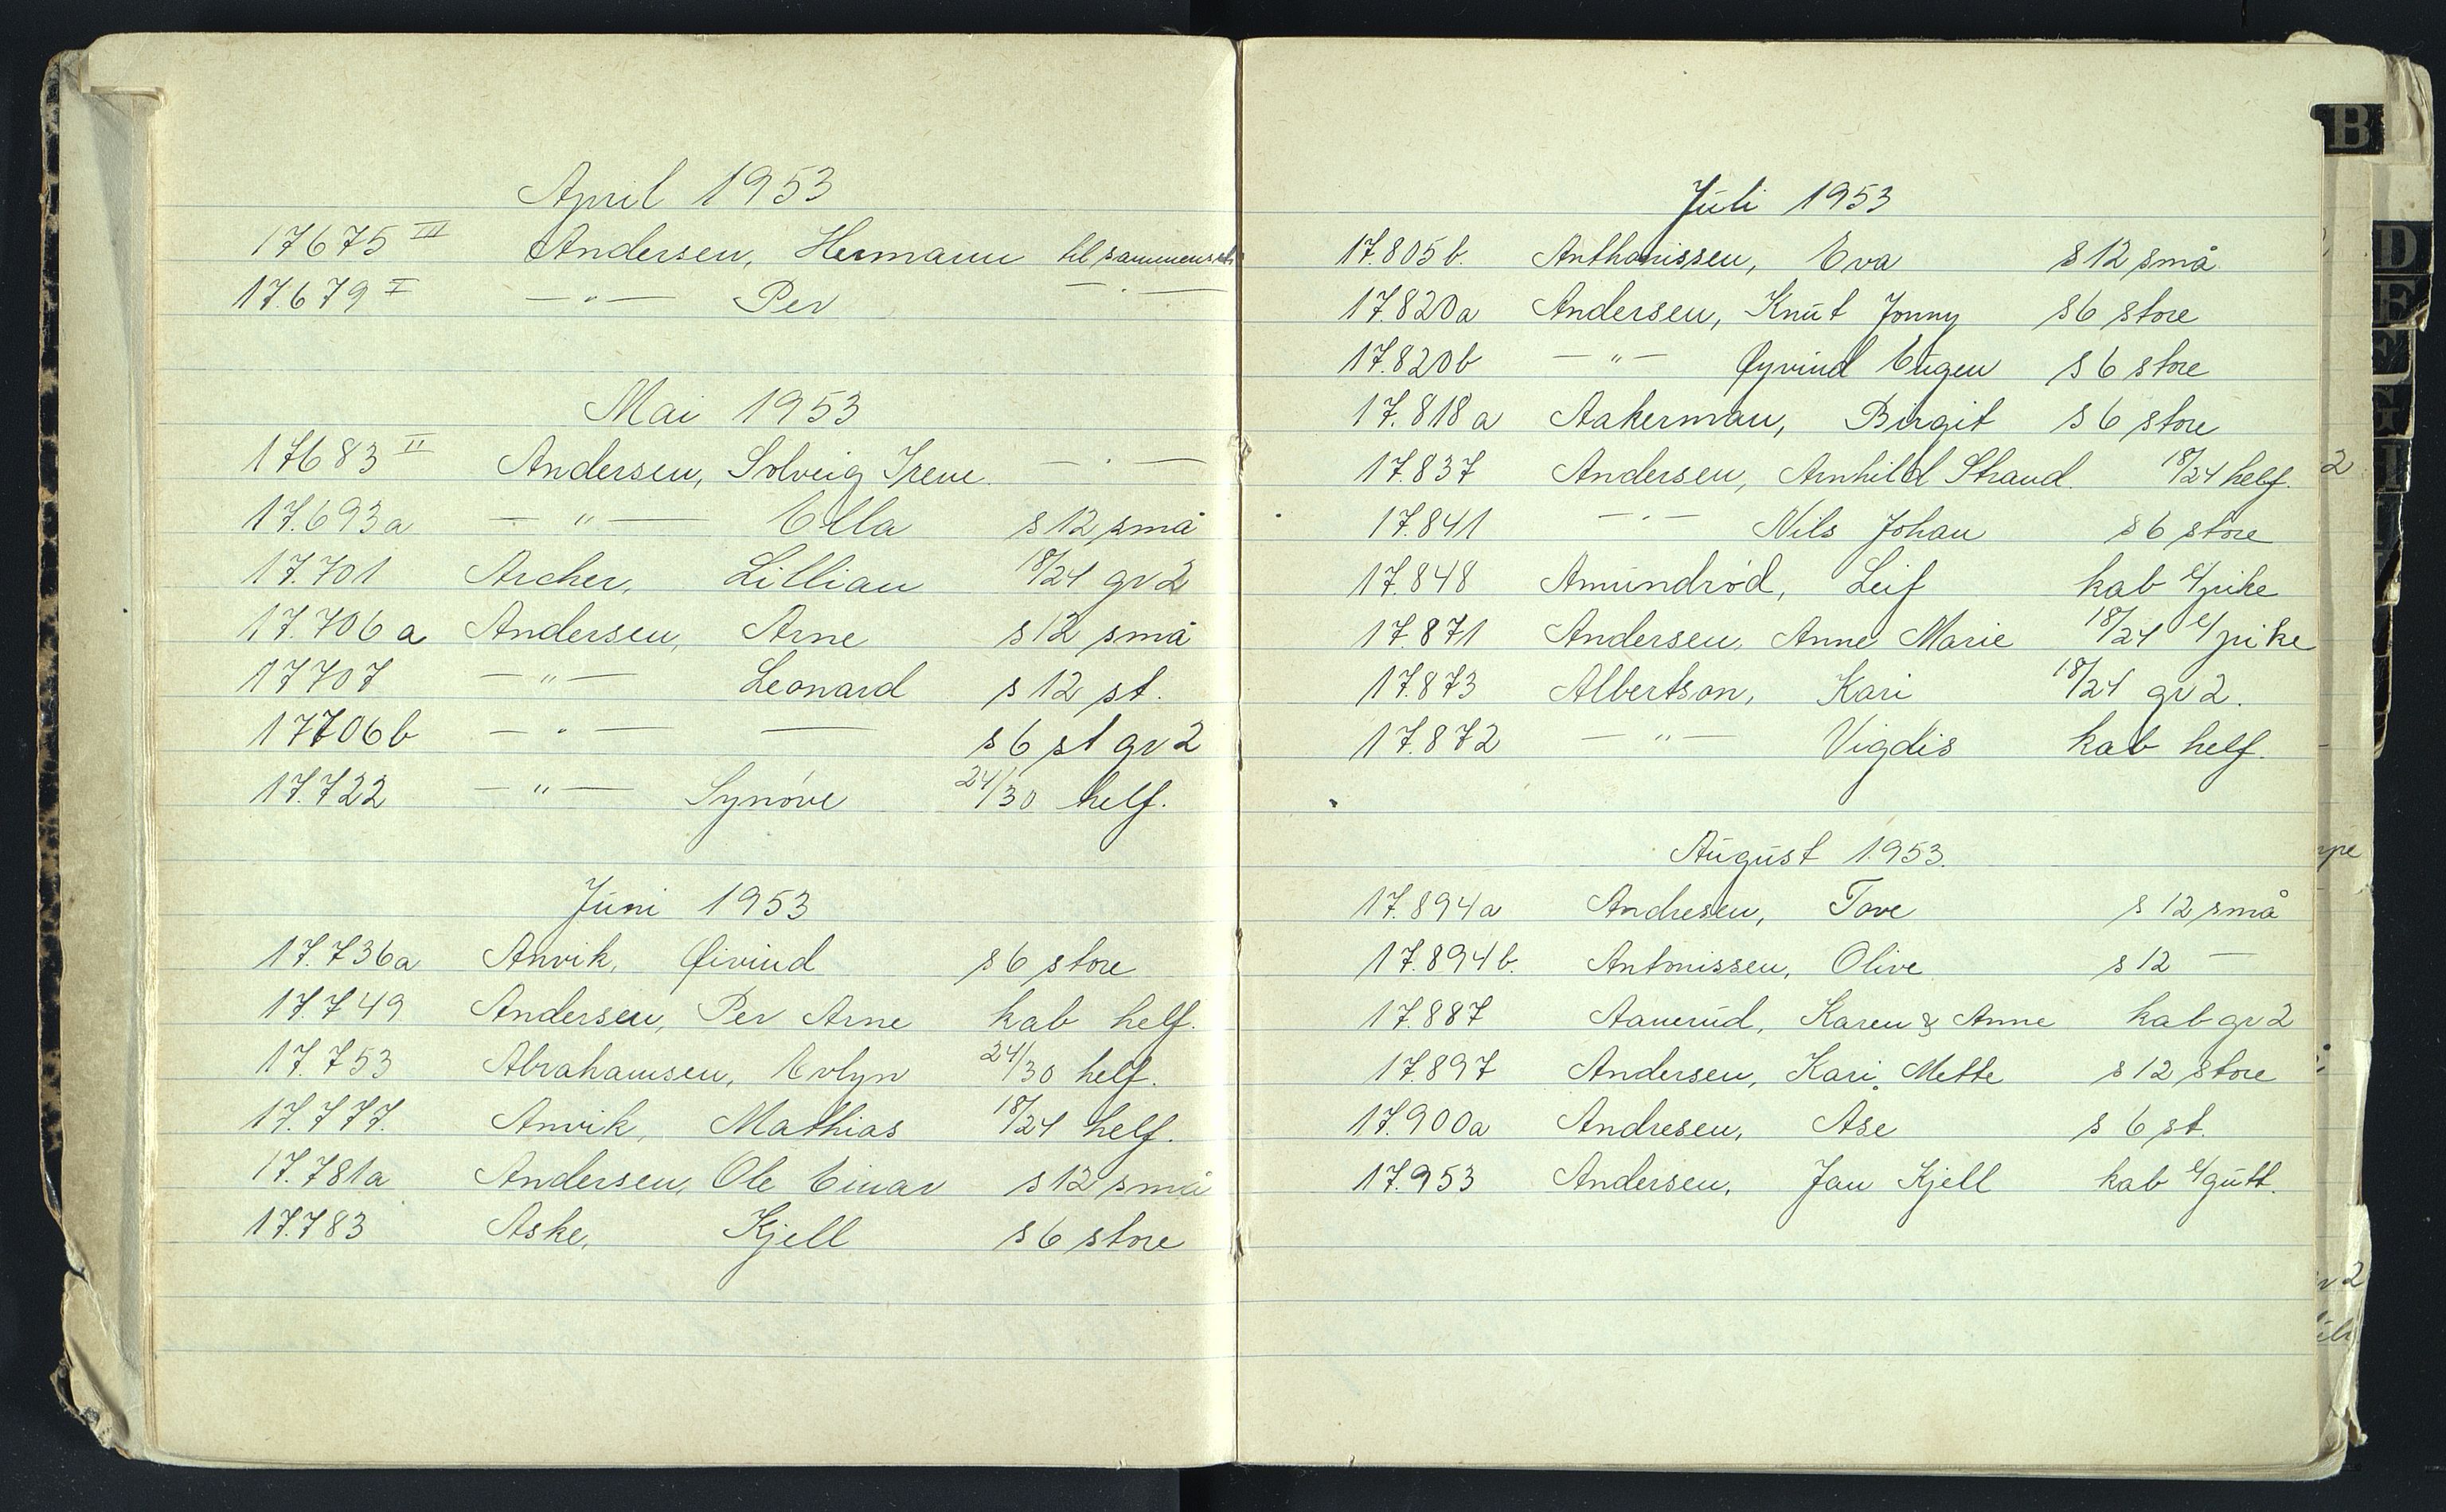 April 1953
17675 III Andersen, Hermann til sammensetn
17.679 I —"— Per —"—
Mai 1953
17683 II Andersen, Solveig Irene. —"—
17.693a —"— Ella s 12 små
17.701 Archer, Lillian 18/24 gr 2
17.706a Andersen, Arne s 12 små
17707 —"— Leonard s 12 st.
17706b —"— — s 6 st gr 2
17.722 —"— Synöve 24/30 helf.
Juni 1953
17.736a Anvik, Øivind s 6 store
17.749 Andersen, Per Arne kab helf.
17.753 Abrahamsen, Evlyn 24/30 helf.
17.777. Anvik, Mathias 18/24 helf.
17.781a Andersen, Ole Einar s 12 små
17.783 Aske, Kjell s 6 store
Juli 1953
17.805b. Anthonissen, Eva s 12 små
17.820a Andersen, Knut Jonny s 6 store
17.820b —"— Øyvind Eugen s 6 store
17.818a Aakerman, Birgit s 6 store
17.837 Andersen, Arnhild Strand. 18/24 helf.
17.841 —"— Nils Johan s 6 store
17.848 Amundröd, Leif kab e/pike
17.871 Andersen, Anne Marie 18/24 e/pike
17.873 Albertson, Kari 18/24 gr 2.
17.872 —"— Vigdis kab helf.
August 1953.
17.894a Andresen, Tove s 12 små
17.894b. Antonissen, Olive s 12 —
17.887 Aanerud, Karen & Anne kab gr 2
17.897 Andersen, Kari Mette s 12 store
17.900a Andresen, Åse s 6 st.
17.953 Andersen, Jan Kjell kab e/gutt.
B
D
E
F
G